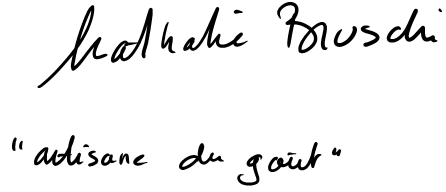 Nathalie Bruschi
"artisane du goût"